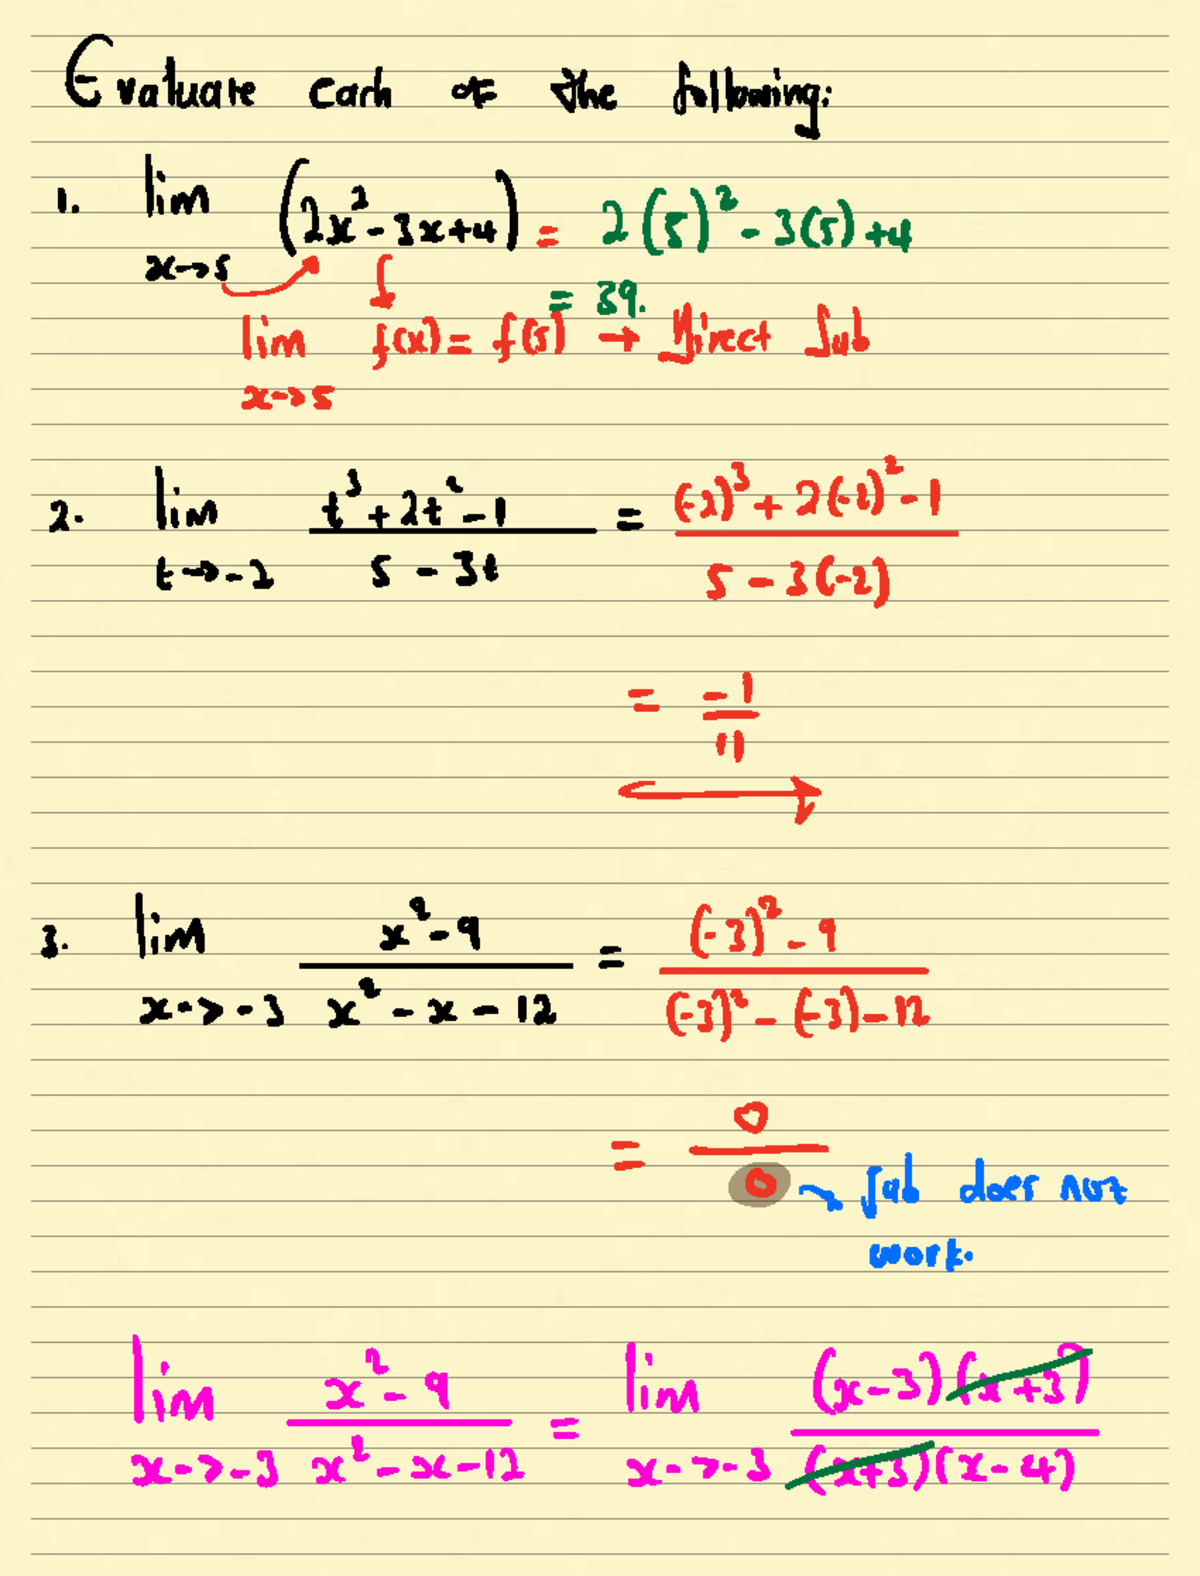 Evaluate each of the following:
1. lim x->5 (2x² - 3x + 4) = 2(5)² - 3(5) + 4
= 39.
lim x->5 f(x) = f(5) → Direct Sub
2. lim t->-2 (t³ + 2t² - 1)/(5 - 3t) = ((-2)³ + 2(-2)² - 1)/(5 - 3(-2))
= -1/11
3. lim x->-3 (x² - 9)/(x² - x - 12) = ((-3)² - 9)/((-3)² - (-3) - 12)
= 0/0 → Sub does not
work.
lim x->-3 (x² - 9)/(x² - x - 12) = lim x->-3 ((x-3)(x+3))/((x+3)(x-4))